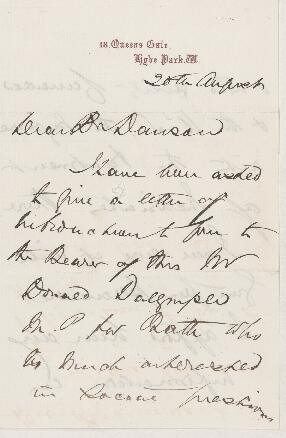 18. Queens Gate,
Hyde Park. W.
20th August
Dear Dr Dawson
I have been asked
to give a letter of
introduction to you to
the Bearer of this Mr
Donald Dalrymple
M. P for Bath who
is much interested
in Social questions